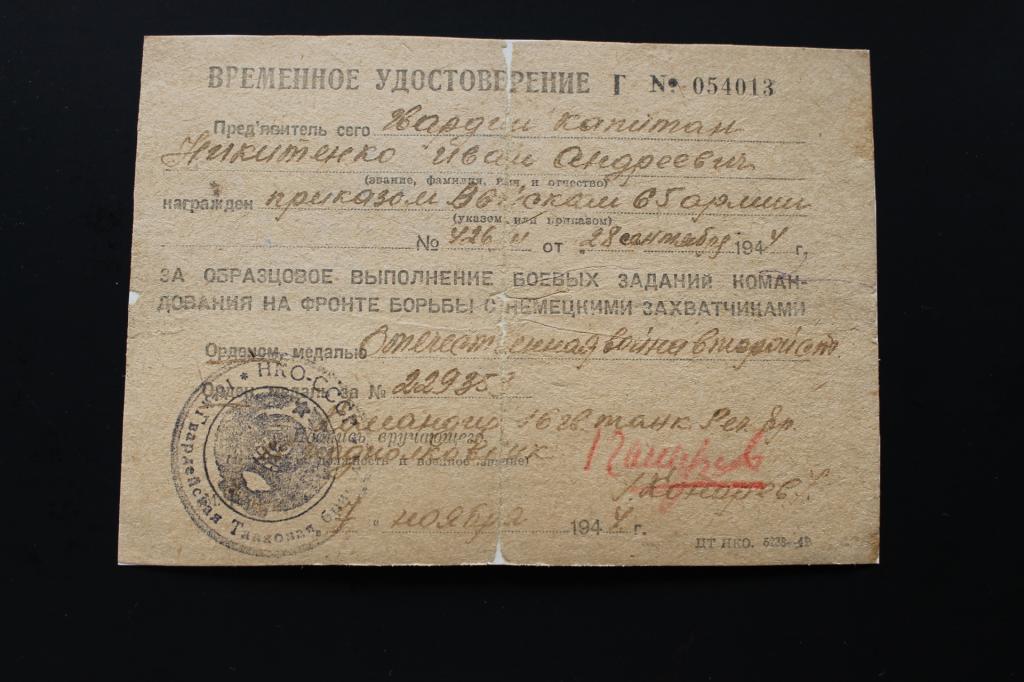 ВРЕМЕННОЕ УДОСТОВЕРЕНИЕ Г № 054013
Пред'явитель сего Гвардии капитан
Никитенко Иван Андреевич
(звание, фамилия, имя, и отчество)
награжден приказом Войскам 65 армии
(указом или приказом)
№ 426 н от 28 сентября 1944 г,
ЗА ОБРАЗЦОВОЕ ВЫПОЛНЕНИЕ БОЕВЫХ ЗАДАНИЙ КОМАН-
ДОВАНИЯ НА ФРОНТЕ БОРЬБЫ С НЕМЕЦКИМИ ЗАХВАТЧИКАМИ
Орденом, медалью Отечественная война второй ст
Орден, медаль за № 22935
Командир 16 гв танк бр.
Подпись вручающего
подполковник
должность и военное звание)
7 ноября 1944 г.
ЦТ НКО. 5238-42
* НКО-СССР *
Гвардейская Танковая